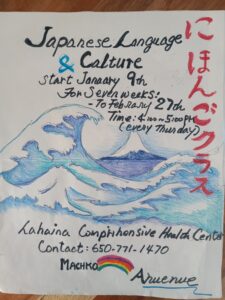 Japanese Language
& Culture
Start January 9th
For Seven weeks!
- To February 27th
Time: 4pm~5:00PM
(every Thursday)
にほんごクラス
Lahaina Comprihensive Health Center
Contact: 650-771-1470
MACHKO
Anuenue